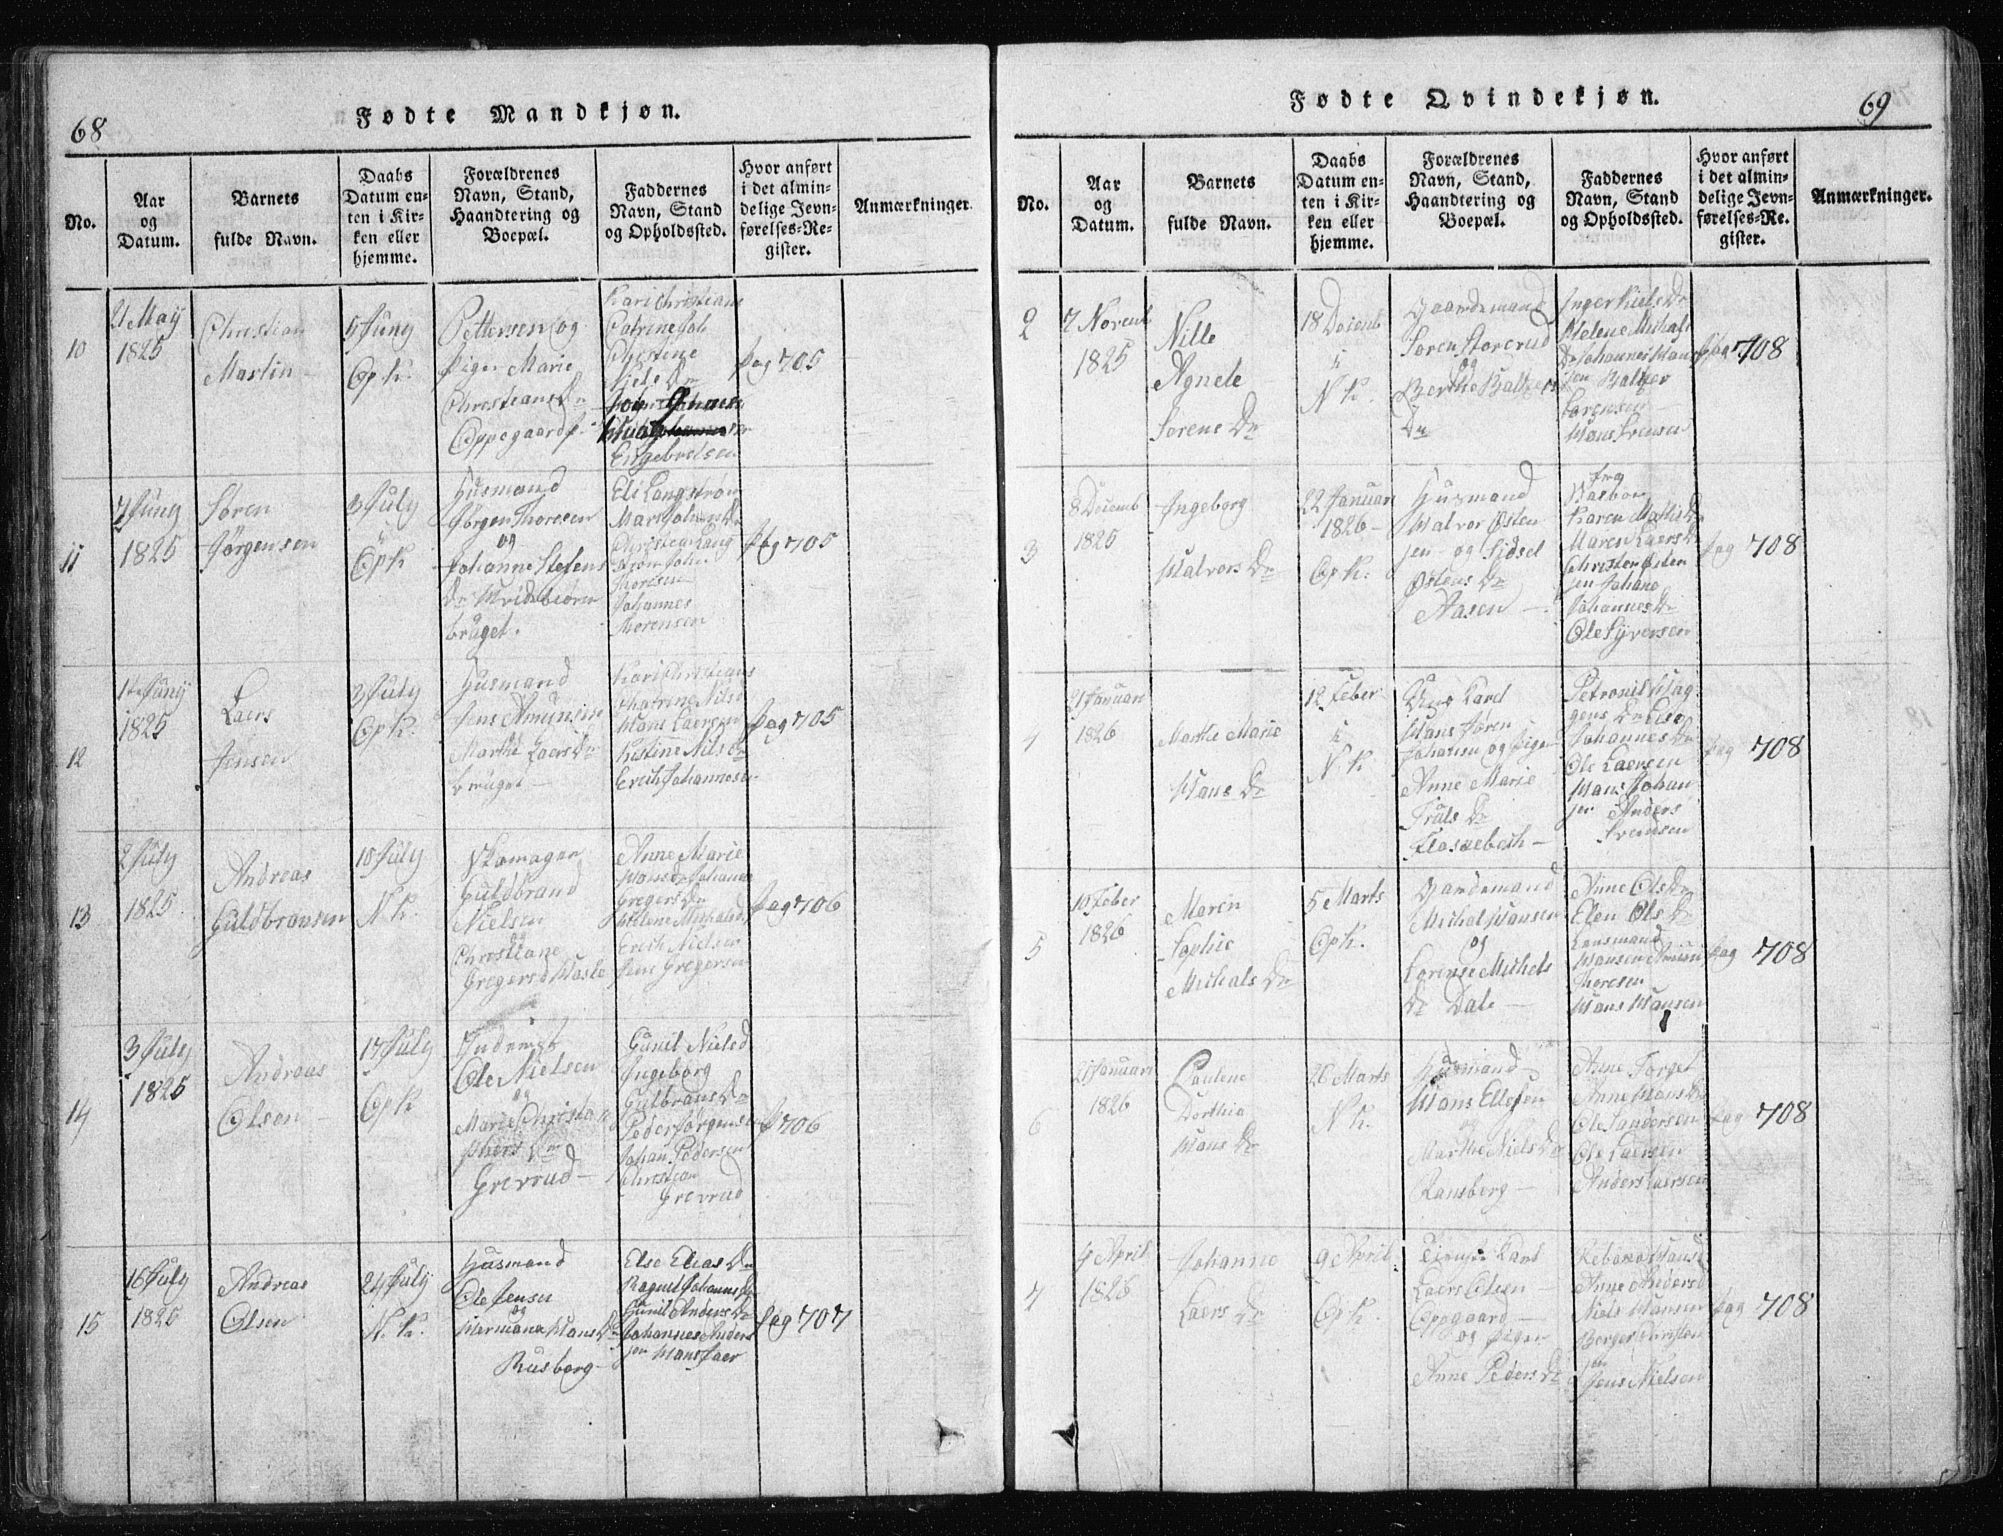 68
Fødte Mandkjøn.
No.
Aar
og
Datum.
Barnets
fulde Navn.
Daabs
Datum en-
ten i Kir-
ken eller
hjemme.
Forældrenes
Navn, Stand,
Haandtering og
Boepæl.
Faddernes
Navn, Stand
og Opholdssted.
Hvor anført
i det almin-
delige Jevn-
førelses-Re-
gister.
Anmærkninger.
10
21 May
1825
Christian
Martin
5 Juny
Op K.
Pettersen og
Piger Marie
Christians Dr
Oppegaard
Kari Christians
Catrine Joh
Christene
Engebretsen
Pag 705
11
7 Juny
1825
Søren
Jørgensen
3 July
Op K
Husmand
Jørgen Thoresen
og
Johanne Stefens
Dr Hvidebiørn
bruget.
Eli Langstrøm
Mari Johans Dr
Christian Lang
strøm John
Thoresen
Johannes
Thorensen
Pag 705
12
14 Juny
1825
Laers
Jensen
3 July
Op K.
Husmand
Jens Amunsen
og
Marthe Laers Dr
bruget
Kari Christians
Chatrine Nils
Hans Laersen
Kistine Nils Dr
Erich Johannesen
Pag 705
13
2 July
1825
Andreas
Guldbransen
10 July
N K.
Skomager
Guldbrand
Nielsen
og
Christiane
Gregers D
Anne Marie
Gregers Dr
Helene Michals D
Erich Nielsen
Jens Gregersen
Pag 706
14
3 July
1825
Andreas
Olsen
17 July
Op K
Inderøst
Ole Nielsen
og
Marie Christo
phers Dr
Grevrud
Gunil Niels D
Ingeborg
Gulbrans Dr
Peder Jørgensen
Johan Pedersen
Christian
Grevrud
P 706
15
16 July
1825
Andreas
Olsen
24 July
N. K.
Husmand
Ole Jensen
og
Hermana Hans Dr
Rusberg
Else Elias Dr
Ragnil Johannes Dr
Gunil Anders Dr
Johannes Anders
sen Hans Laer
Pag 707
69
Fødte Qvindekjøn.
No.
Aar
og
Datum.
Barnets
fulde Navn.
Daabs
Datum en-
ten i Kir-
ken eller
hjemme.
Forældrenes
Navn, Stand,
Haandtering og
Boepæl.
Faddernes
Navn, Stand
og Opholdssted.
Hvor anført
i det almin-
delige Jevn-
førelses-Re-
gister.
Anmærkninger.
2
7 Novemb
1825
Nille
Agnete
Sørens Dr
18 Decemb
i
N K.
Gaardemand
Søren Storerud
og
Berthe Baltzers
Dr
Inger Niels Dr
Helene Michals
Dr Johannes Han
sen Baltzer
Sørensen
Hans Svensen
Pag 708
3
8 Decemb
1825
Ingeborg
Halvors Dr
22 Januari
1826
Op K.
Husmand
Halvor Østen
sen og Sidsel
Østens Dr
Aasen
Karen Mathis Dr
Maren Laers Dr
Christen Østen
sen Johane
Johannes Dr
Ole Syversen
Pag 708
4
21 Januari
1826
Marthe Marie
Hans Dr
12 Feber
i
N K
Hans Søren
Johansen og Piger
Anne Marie
Truls Dr
Flaskebeth
Petronil Haa
gens Dr Lise
Johannes Dr
Ole Laersen
Hans Johan
sen Anders
Svensen
Pag 708
5
10 Feber
1826
Maren
Sophie
Michals Dr
5 Marts
Op K.
Gaardemand
Michel Hansen
og
Lorense Michels
Dr Dale
Anne Ols Dr
Elen Ols Dr
Lensmand
Hansen Amun
Thoresen
Hans Hansen
Pag 708
6
20 Januari
1826
Pauline
Dorthia
Hans Dr
26 Marts
N K.
Husmand
Hans Ellefsen
og
Marthe Niels Dr
Ransberg
Anne Torget
Anne Hans Dr
Ole Sandersen
Ole Laersen
Anders Laersen
Pag 708
7
4 April
1826
Johanne
Laers Dr
9 April
Op K.
Tieneste Karl
Laers Olsen
Oppgaard
og Piger
Anne Peders Dr
Rebeka Hans D
Anne Anders D
Niels Hansen
Berger Christen
sen
Jens Nielsen
Pag 708